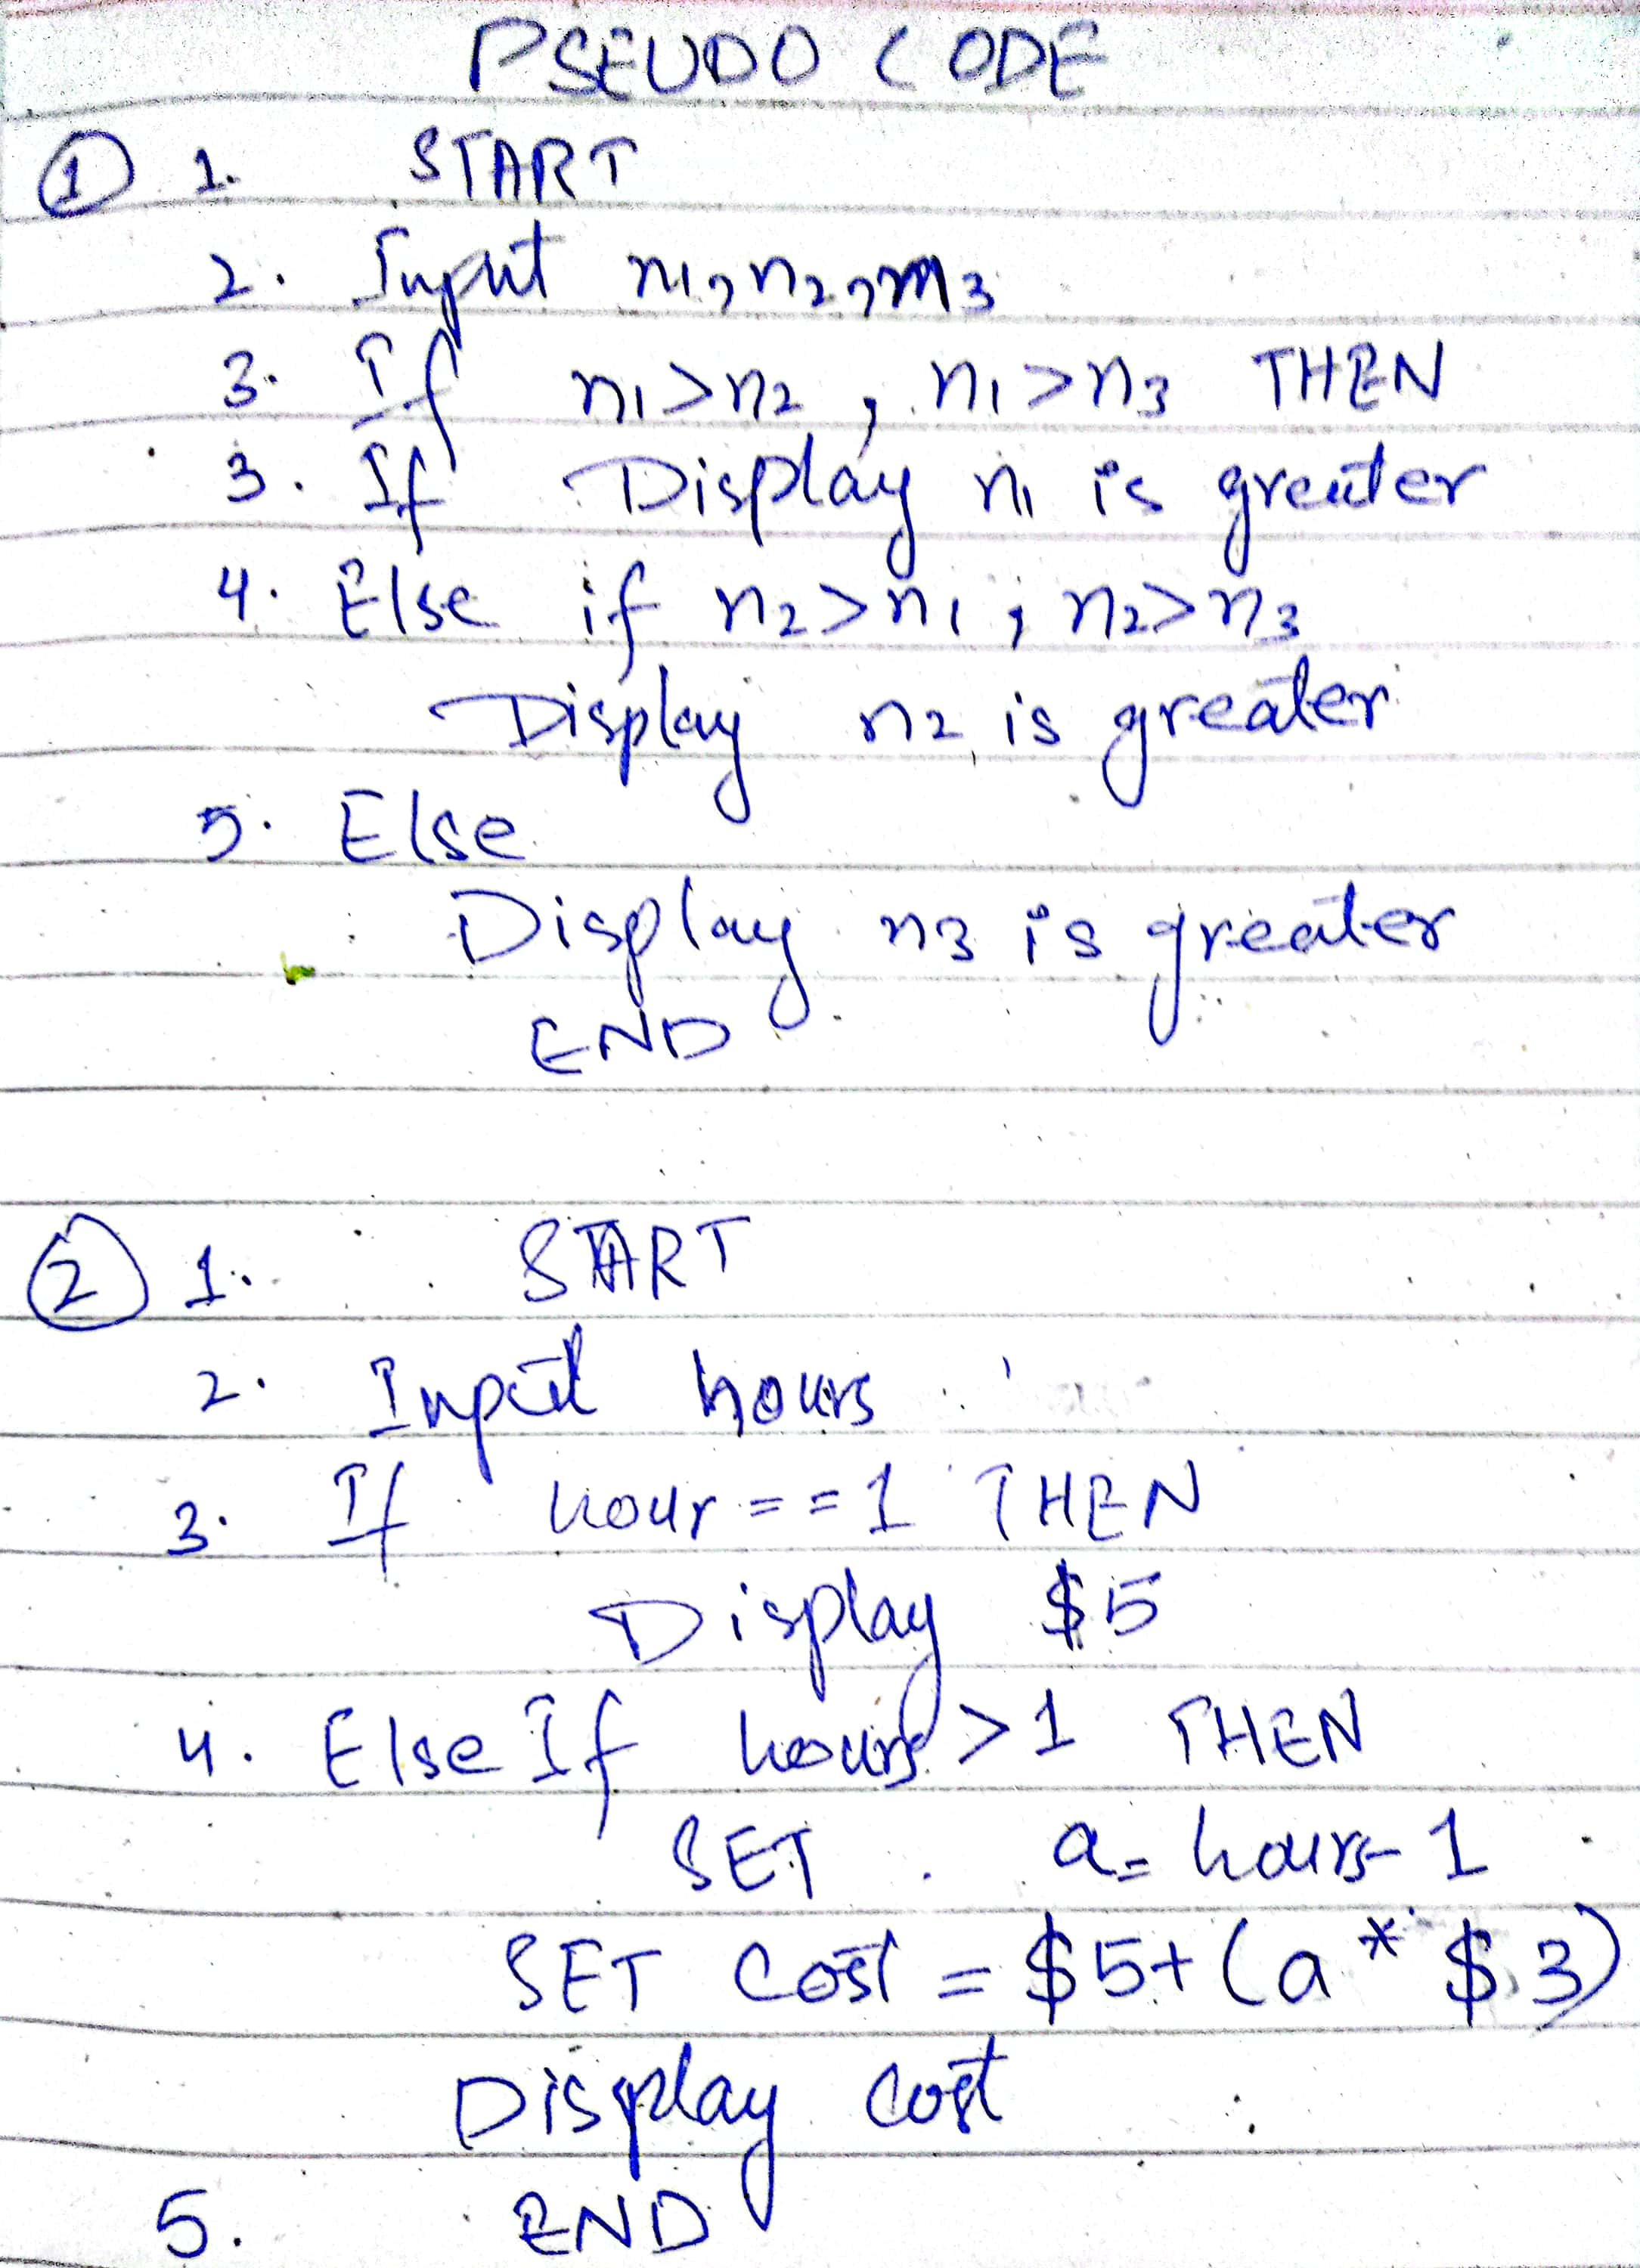 PSEUDO CODE
① 1. START
2. Input n1, n2, n3
3. If n1>n2, n1>n3 THEN
3. If Display n1 is greater
4. Else if n2>n1; n2>n3
Display n2 is greater
5. Else
Display n3 is greater
END
② 1. START
2. Input hours
3. If hour==1 THEN
Display $5
4. Else If hours>1 THEN
SET a=hours-1
SET Cost = $5+(a*$3)
Display cost
5. END